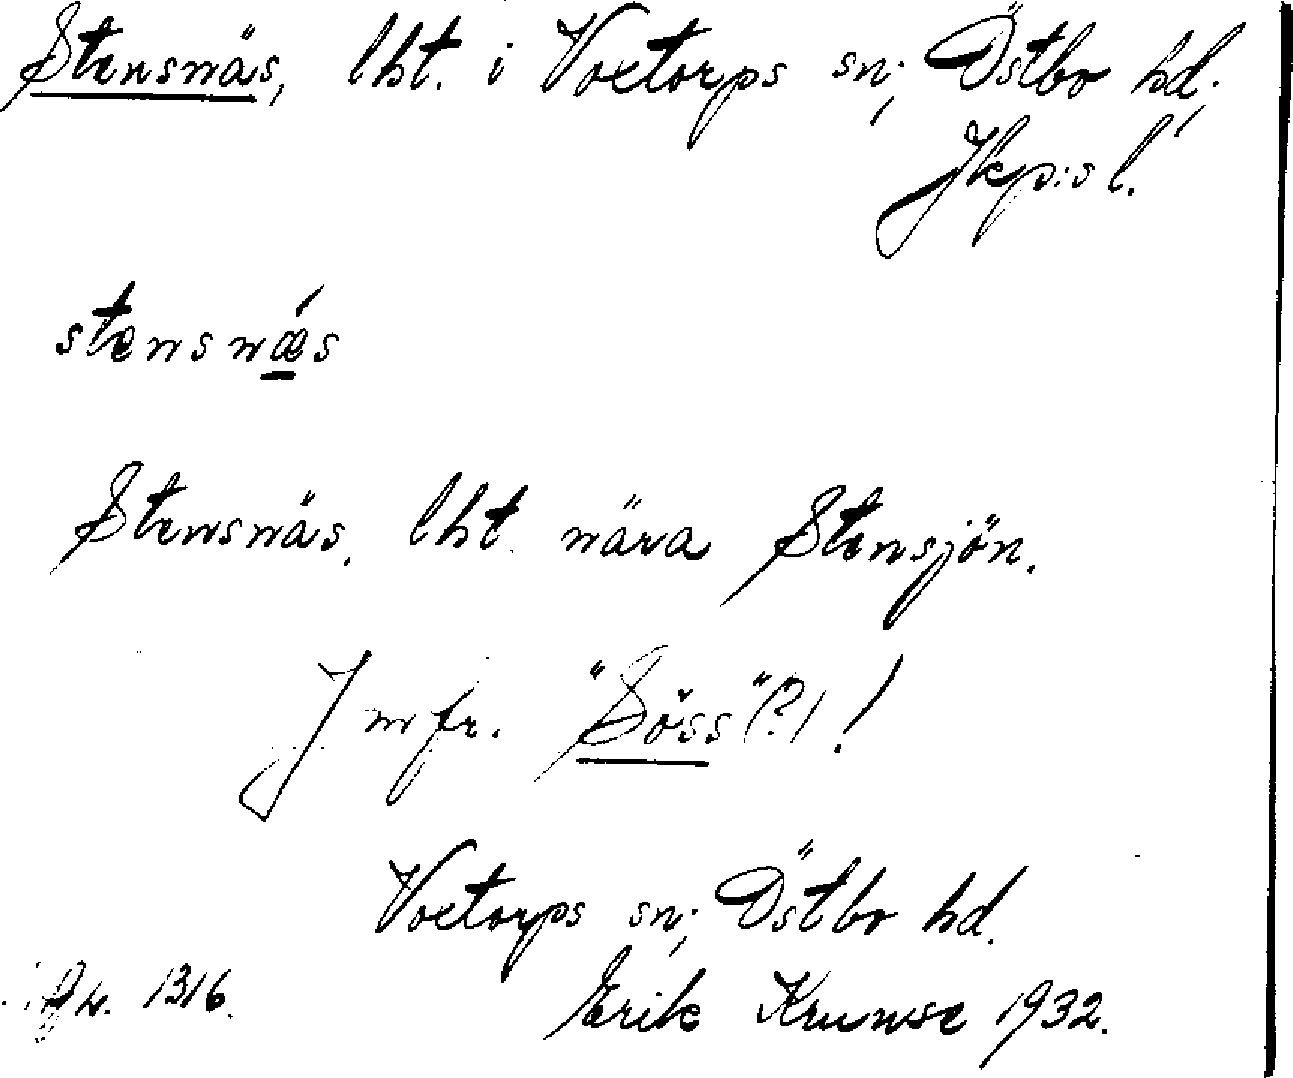 Stensnäs, lht. i Voxtorps sn; Östbo hd;
Jkp:s l.
stensnǽs
Stensnäs. lht. nära Stensjön.
Jmfr. "Söss"(?)!
Voxtorps sn; Östbo hd.
1316. Erik Krunse 1932.